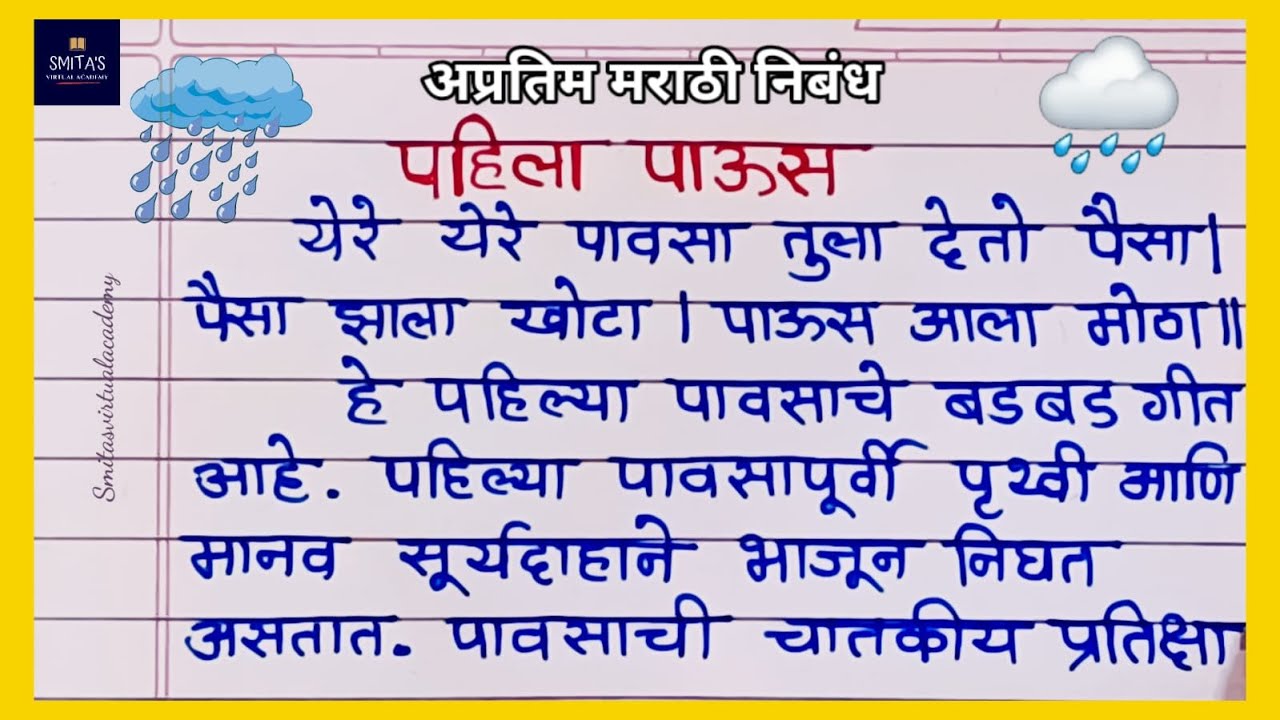 SMITA'S
VIRTUAL ACADEMY
अप्रतिम मराठी निबंध
पहिला पाऊस
येरे येरे पावसा तुला देतो पैसा।
पैसा झाला खोटा । पाऊस आला मोठा॥
हे पहिल्या पावसाचे बडबड गीत
आहे. पहिल्या पावसापूर्वी पृथ्वी आणि
मानव सूर्यदाहाने भाजून निघत
असतात. पावसाची चातकीय प्रतिक्षा
Smitasvirtualacademy